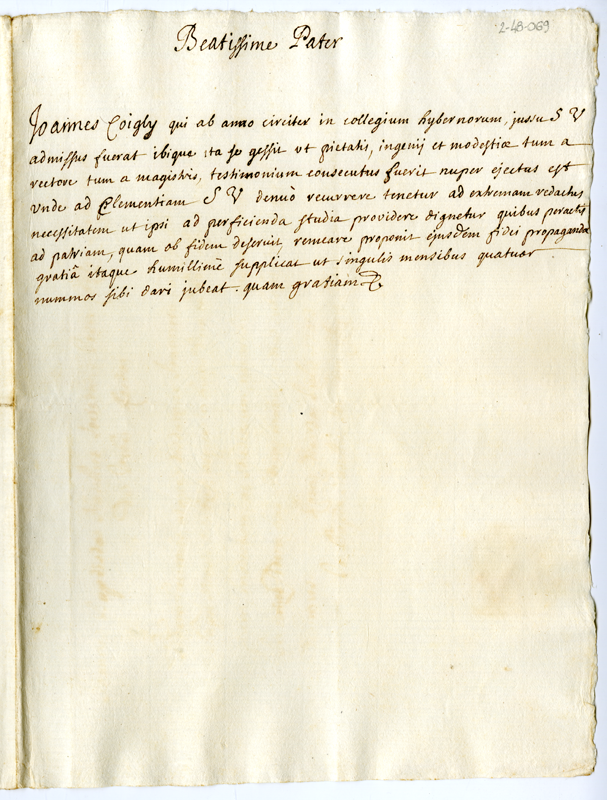 2-48-069
Beatissime Pater
Joannes Coigly qui ab anno circiter in collegium hybernorum, jussu S V
admissus fuerat ibique ita se gessit ut pietatis, ingenij et modestiæ tum a
rectore tum a magistris, testimonium consecutus fuerit nuper ejectus est
Unde ad Clementiam S V denuò recurrere tenetur ad extremam redactus
necessitatem ut ipsi ad perficienda studia providere dignetur quibus peractis
ad patriam, quam ob fidem deseruit, remeare proponit ejusdem fidei propagandæ
gratiâ itaque humillimè supplicat ut singulis mensibus quatuor
nummos sibi dari jubeat. quam gratiam